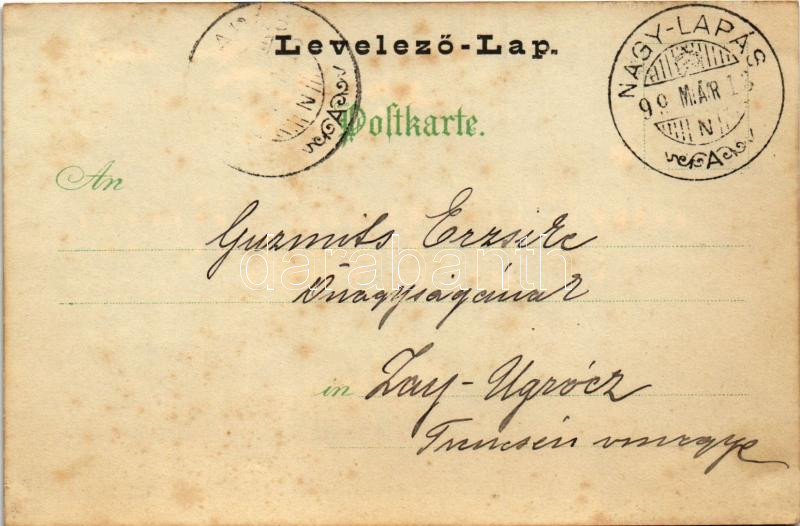 Levelező-Lap.
NAGY-LAPÁS
99 MÁR 13
N
A
N
A
Postkarte.
An
Guzmits Erzsike
Őnagyságának
in Zay-Ugrócz
Trencsén vmegye
darabanth